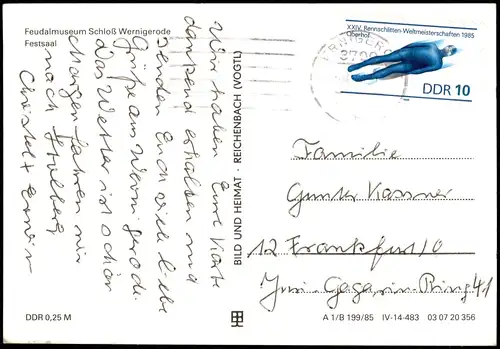 Feudalmuseum Schloß Wernigerode
Festsaal
Wir haben Eure Karte
dankend erhalten und
senden Euch viele liebe
Grüße aus Wernigerode.
Das Wetter ist schön
morgen fahren wir
nach Stolberg
Christel + Erwin
DDR 0,25 M
BILD UND HEIMAT REICHENBACH (VOGTL)
XXIV. Rennschlitten-Weltmeisterschaften 1985
Oberhof
DDR 10
Familie
Gunter Kassner
12 Frankfurt/O
Juri-Gagarin-Ring 41
A 1/B 199/85 IV-14-483 03 07 20 356